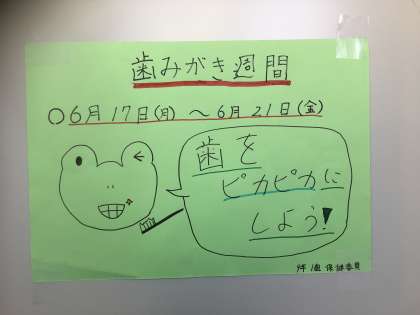 歯みがき週間
○6月17日(月)～6月21日(金)
歯を
ピカピカに
しよう!
保健委員